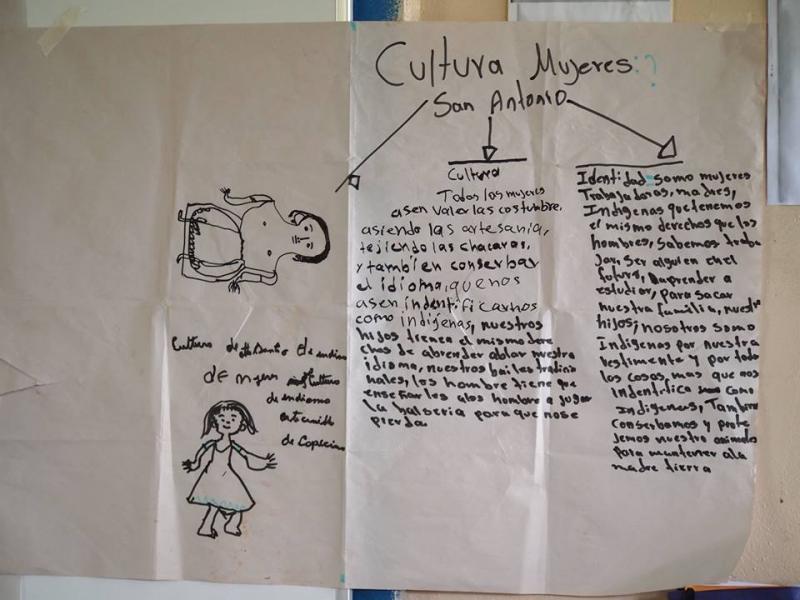 Cultura Mujeres:?
San Antonio
Cultura
Todos los mujeres
asen valor las costumbre,
asiendo las artesania,
tejiendo las chacaras,
y tambien conserbar
el idioma, quenos
asen indentificarnos
como indígenas, nuestros
hijos tienen el mismo dere
chos de abrender ablar nuestro
idioma, nuestros bailes tradicio
nales, los hombre tiene que
enseñar les alos hombre a jugar
la balseria para que nose
pierda
Identidad somo mujeres
Trabajadoras, madres,
Indigenas que tenemos
el mismo derechos que los
hombres, sabemos traba
Jar, ser alguien en el
futuro, aprender a
estudiar, para sacar
nuestra familia, nuestr
hijos; nosotros somo
Indigenos por nuestra
vestimente y por todo
los cosas, mas que nos
Indentifica como
Indigenas, Tambien
Conserbamos y prote
Jemos nuestro animales
para mantener ala
madre tierra
Cultura de de
de mujer cultura
de indiomo
de